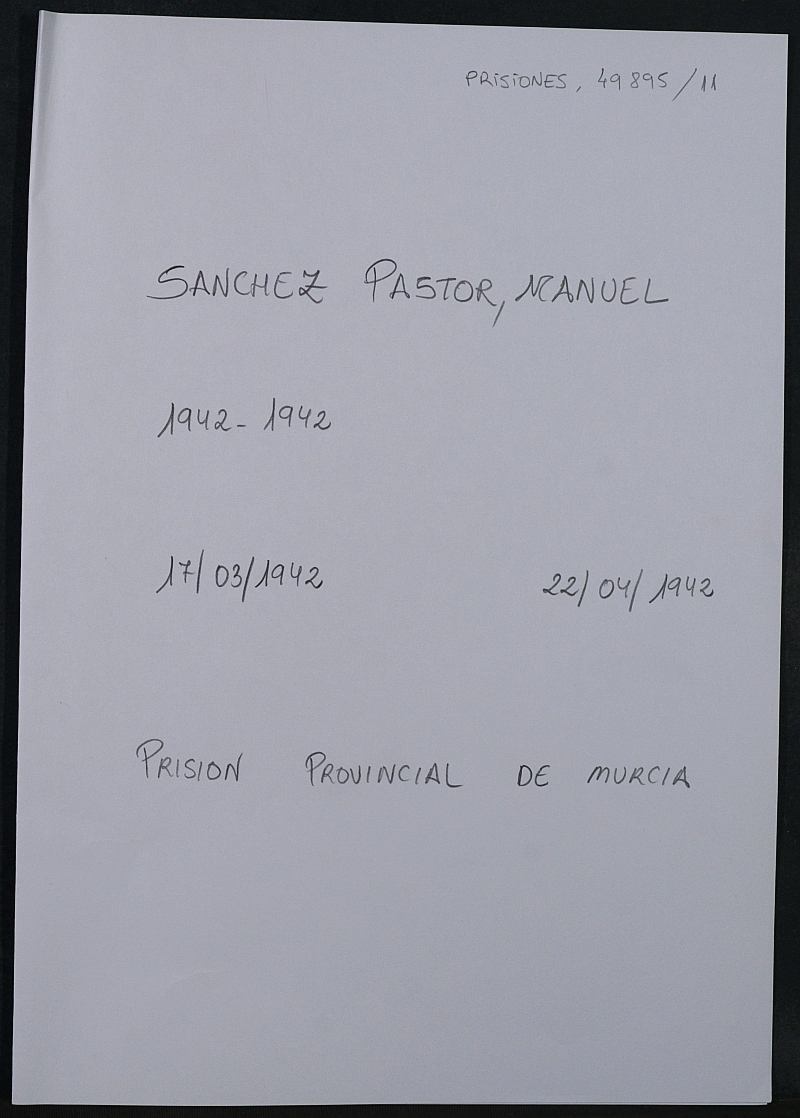 PRISIONES, 49895/11
SANCHEZ PASTOR, MANUEL
1942- 1942
17/03/1942 22/04/1942
PRISION PROVINCIAL DE MURCIA